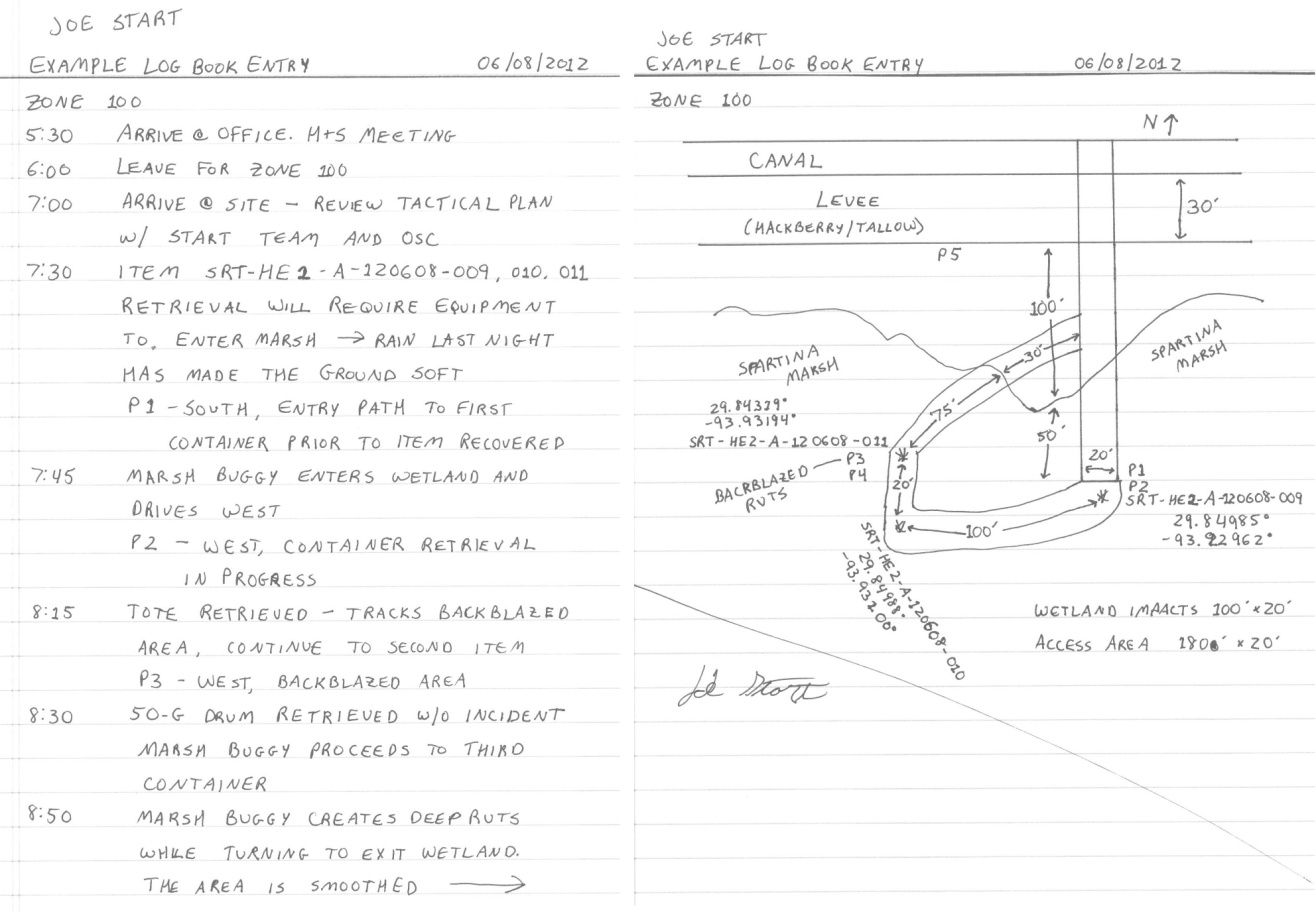 JOE START
EXAMPLE LOG BOOK ENTRY 06/08/2012
ZONE 100
5:30 ARRIVE @ OFFICE. H+S MEETING
6:00 LEAVE FOR ZONE 100
7:00 ARRIVE @ SITE – REVIEW TACTICAL PLAN
W/ START TEAM AND OSC
7:30 ITEM SRT-HE2-A-120608-009, 010, 011
RETRIEVAL WILL REQUIRE EQUIPMENT
TO. ENTER MARSH → RAIN LAST NIGHT
HAS MADE THE GROUND SOFT
P1 – SOUTH, ENTRY PATH TO FIRST
CONTAINER PRIOR TO ITEM RECOVERED
7:45 MARSH BUGGY ENTERS WETLAND AND
DRIVES WEST
P2 – WEST, CONTAINER RETRIEVAL
IN PROGRESS
8:15 TOTE RETRIEVED – TRACKS BACKBLAZED
AREA, CONTINUE TO SECOND ITEM
P3 – WEST, BACKBLAZED AREA
8:30 50-G DRUM RETRIEVED W/O INCIDENT
MARSH BUGGY PROCEEDS TO THIRD
CONTAINER
8:50 MARSH BUGGY CREATES DEEP RUTS
WHILE TURNING TO EXIT WETLAND.
THE AREA IS SMOOTHED →
JOE START
EXAMPLE LOG BOOK ENTRY 06/08/2012
ZONE 100
N ↑
CANAL
LEVEE
(HACKBERRY/TALLOW)
30'
P5
100'
30'
SPARTINA
MARSH
SPARTINA
MARSH
29.84379°
-93.93194°
75'
SRT-HE2-A-120608-011
50'
P3
P4
BACKBLAZED
RUTS
20'
20'
P1
P2
SRT-HE2-A-120608-009
29.84985°
-93.92962°
100'
SRT-HE2-A-120608-010
29.84988°
-93.93200°
WETLAND IMPACTS 100' x 20'
ACCESS AREA 180' x 20'
Joe Start